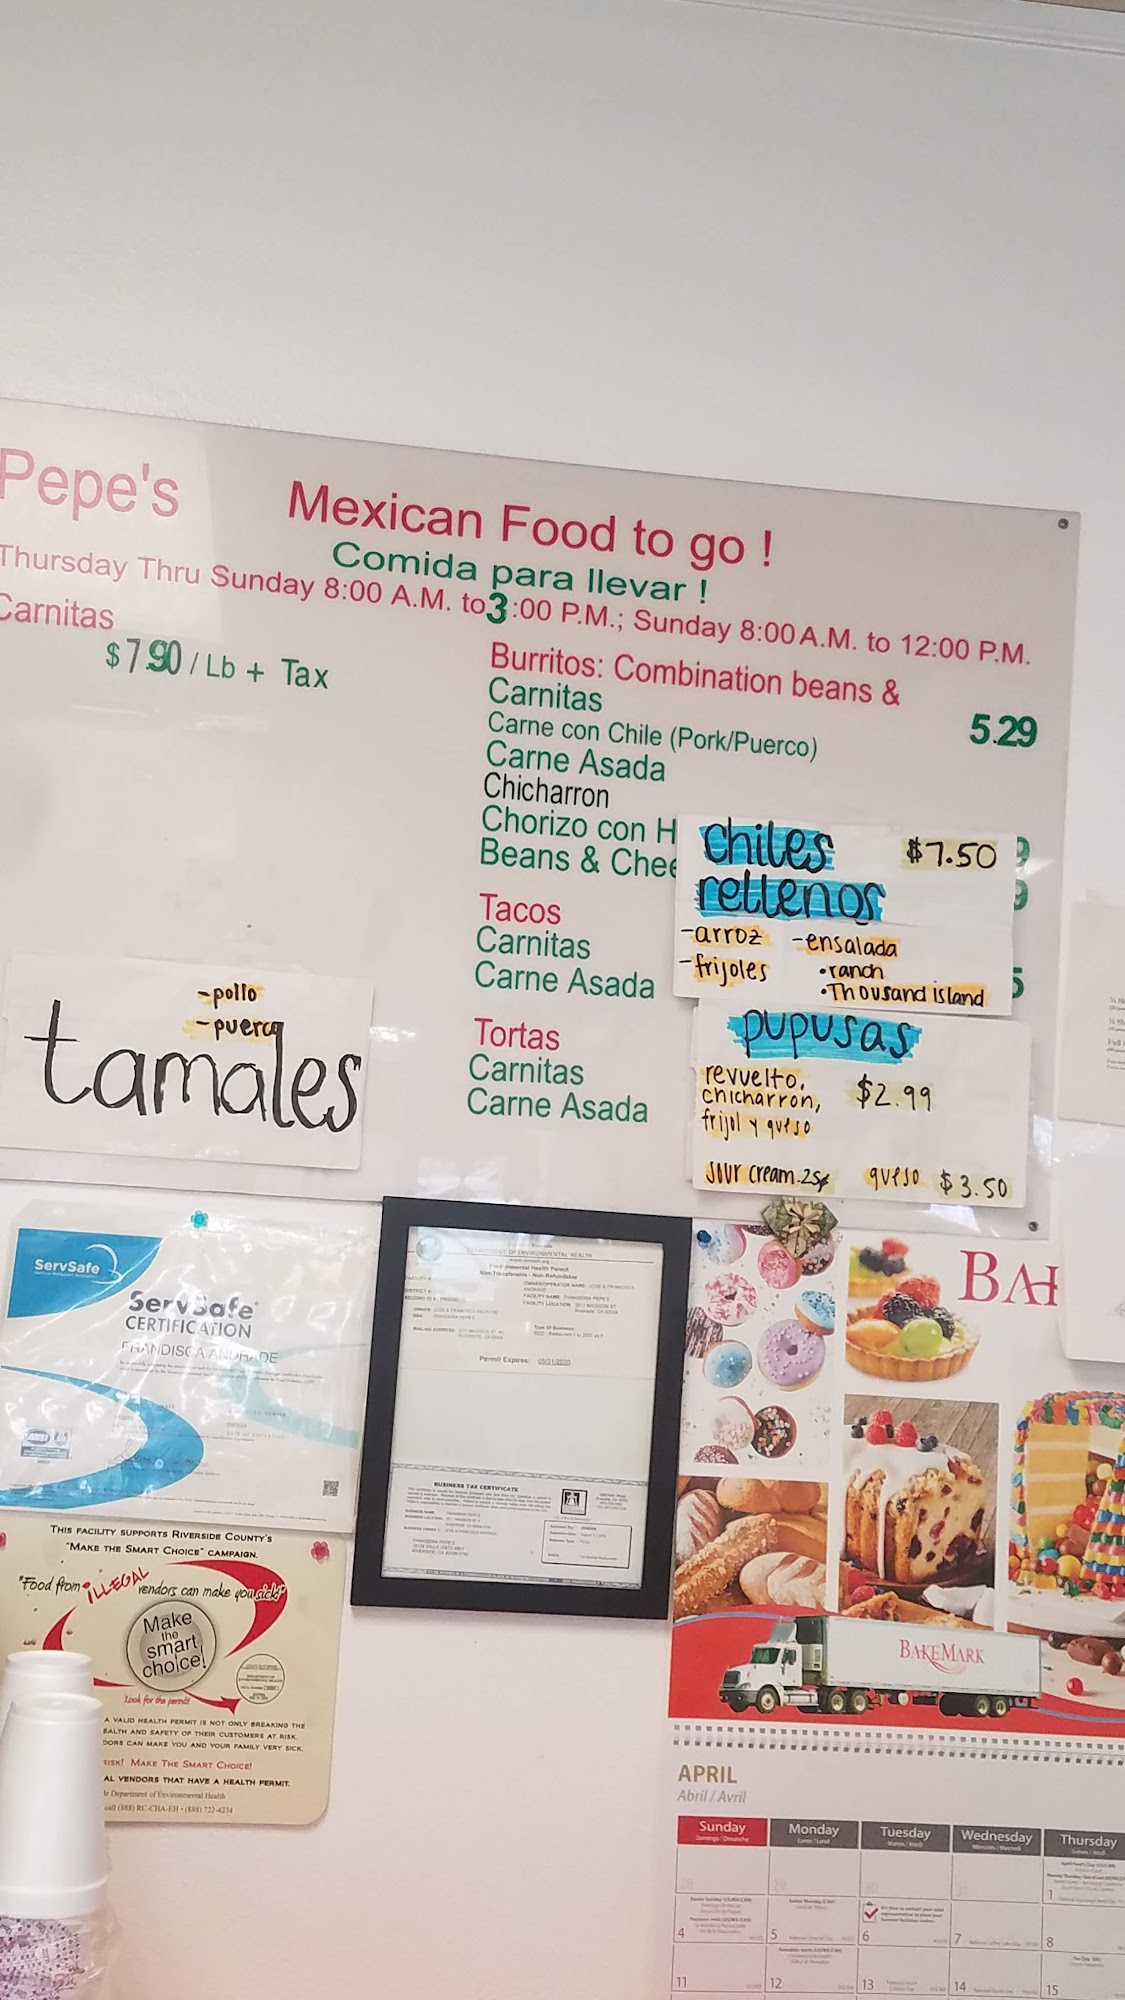 Pepe's
Mexican Food to go !
Comida para llevar !
Thursday Thru Sunday 8:00 A.M. to 3:00 P.M.; Sunday 8:00 A.M. to 12:00 P.M.
Carnitas
$7.90 / Lb + Tax
Burritos: Combination beans &
Carnitas
5.29
Carne con Chile (Pork/Puerco)
Carne Asada
Chicharron
Chorizo con H
Beans & Chee
9
9
Tacos
Carnitas
Carne Asada
5
Tortas
Carnitas
Carne Asada
chiles $7.50
rellenos
-arroz -ensalada
-frijoles •ranch
•Thousand island
pupusas
revuelto,
chicharron, $2.99
frijol y queso
sour cream .25¢ queso $3.50
-pollo
-puerco
tamales
ServSafe
ServSafe
CERTIFICATION
FRANDISCA ANDRADE
DEPARTMENT OF ENVIRONMENTAL HEALTH
Environmental Health Permit
Non-Transferable - Non-Refundable
FACILITY NAME: PANADERIA PEPE'S
Type Of Business:
Permit Expires: 05/31/2020
BUSINESS TAX CERTIFICATE
THIS FACILITY SUPPORTS RIVERSIDE COUNTY'S
"MAKE THE SMART CHOICE" CAMPAIGN.
"Food from ILLEGAL vendors can make you sick!"
Make
the
smart
choice!
Look for the permit!
A VALID HEALTH PERMIT IS NOT ONLY BREAKING THE
EALTH AND SAFETY OF THEIR CUSTOMERS AT RISK.
DORS CAN MAKE YOU AND YOUR FAMILY VERY SICK.
RISK! MAKE THE SMART CHOICE!
AL VENDORS THAT HAVE A HEALTH PERMIT.
Department of Environmental Health
call (888) RC-CHA-EH • (888) 722-4234
BA
BAKEMARK
APRIL
Abril / Avril
Sunday Monday Tuesday Wednesday Thursday
28 29 30 31 1
4 5 6 7 8
11 12 13 14 15